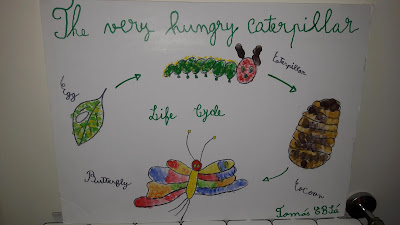 The very hungry caterpillar
Caterpillar
Egg
Life Cycle
Butterfly
Cocoon
Tomás